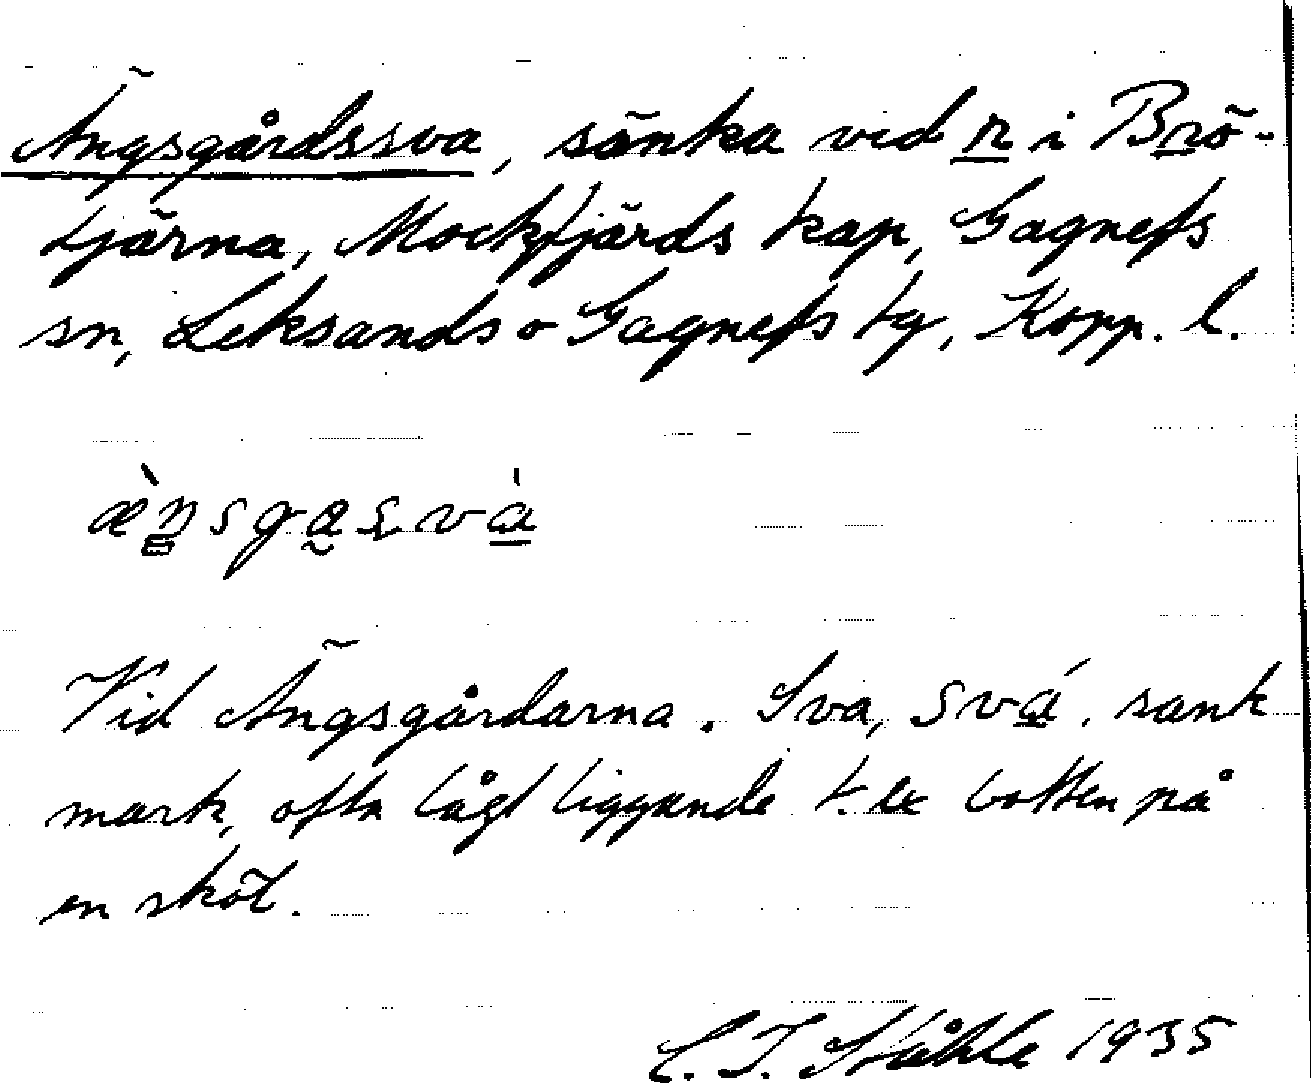 Ängsgårdssva, sänka vid n i Brö-
tjärna, Mockfjärds kap, Gagnefs
sn, Leksands o Gagnefs tg, Kopp. l.
æ̀ŋsga̰svà
Vid Ängsgårdarna. Sva, svá. sank
mark, ofta lågt liggande t. ex botten på
en sköt.
C. I. Ståhle 1935